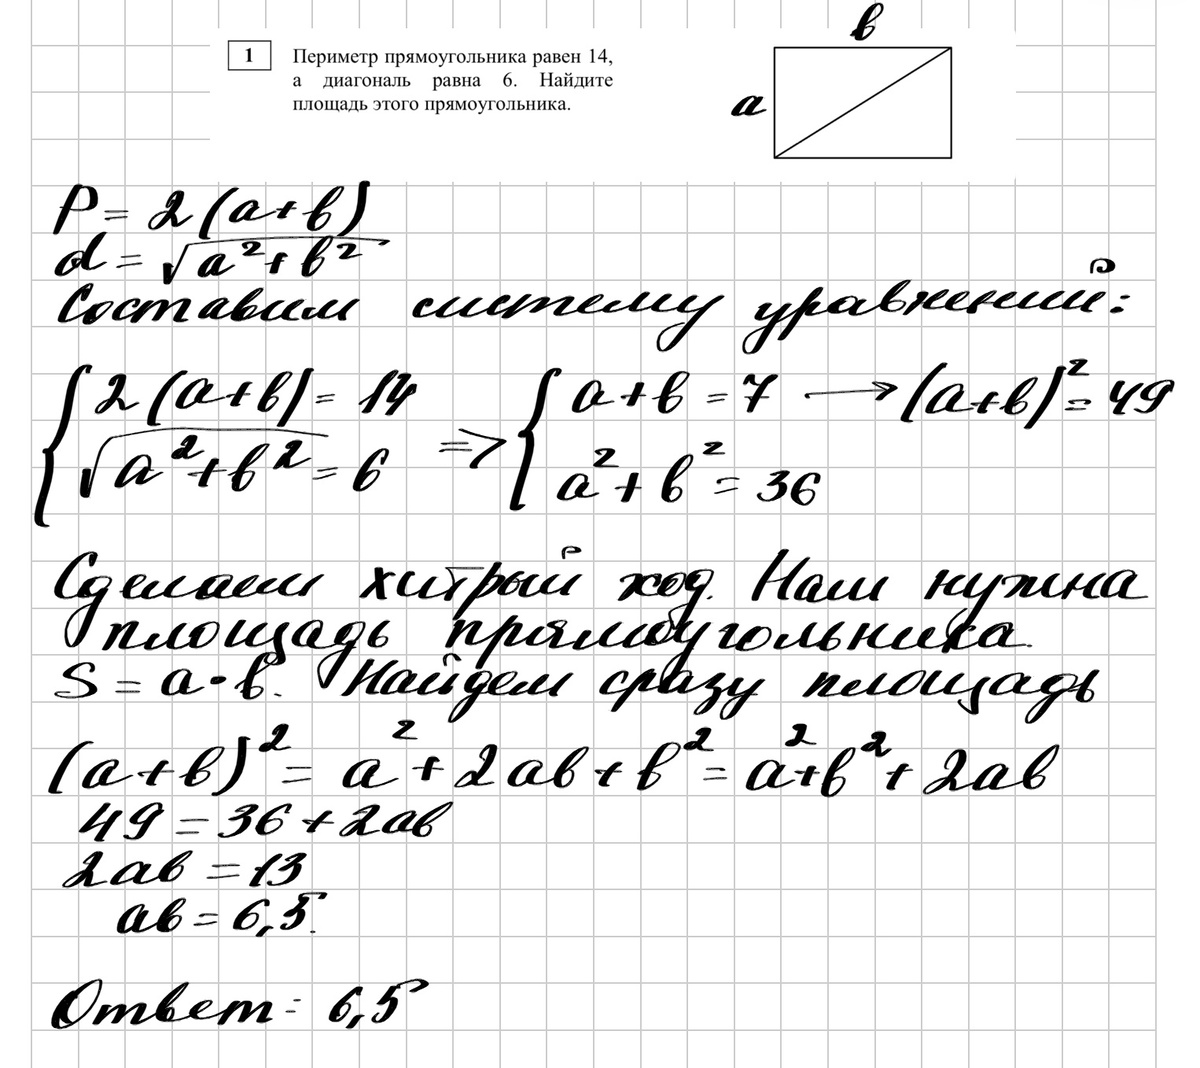 1
Периметр прямоугольника равен 14,
а диагональ равна 6. Найдите
площадь этого прямоугольника.
в
а
P = 2(а+в)
d = √(а²+в²)
Составим систему уравнений:
{ 2(а+в) = 14 => { а+в = 7 → (а+в)² = 49
√(а²+в²) = 6 а²+в² = 36
Сделаем хитрый ход. Нам нужна
площадь прямоугольника.
S = а·в. Найдем сразу площадь
(а+в)² = а²+2ав+в² = а²+в²+2ав
49 = 36+2ав
2ав = 13
ав = 6,5.
Ответ: 6,5